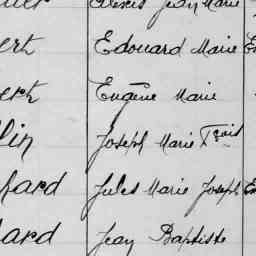 Alexis Jean Marie
Edouard Marie
Eugène Marie
lin Joseph Marie Frois
hard Jules Marie Joseph
hard Jean Baptiste